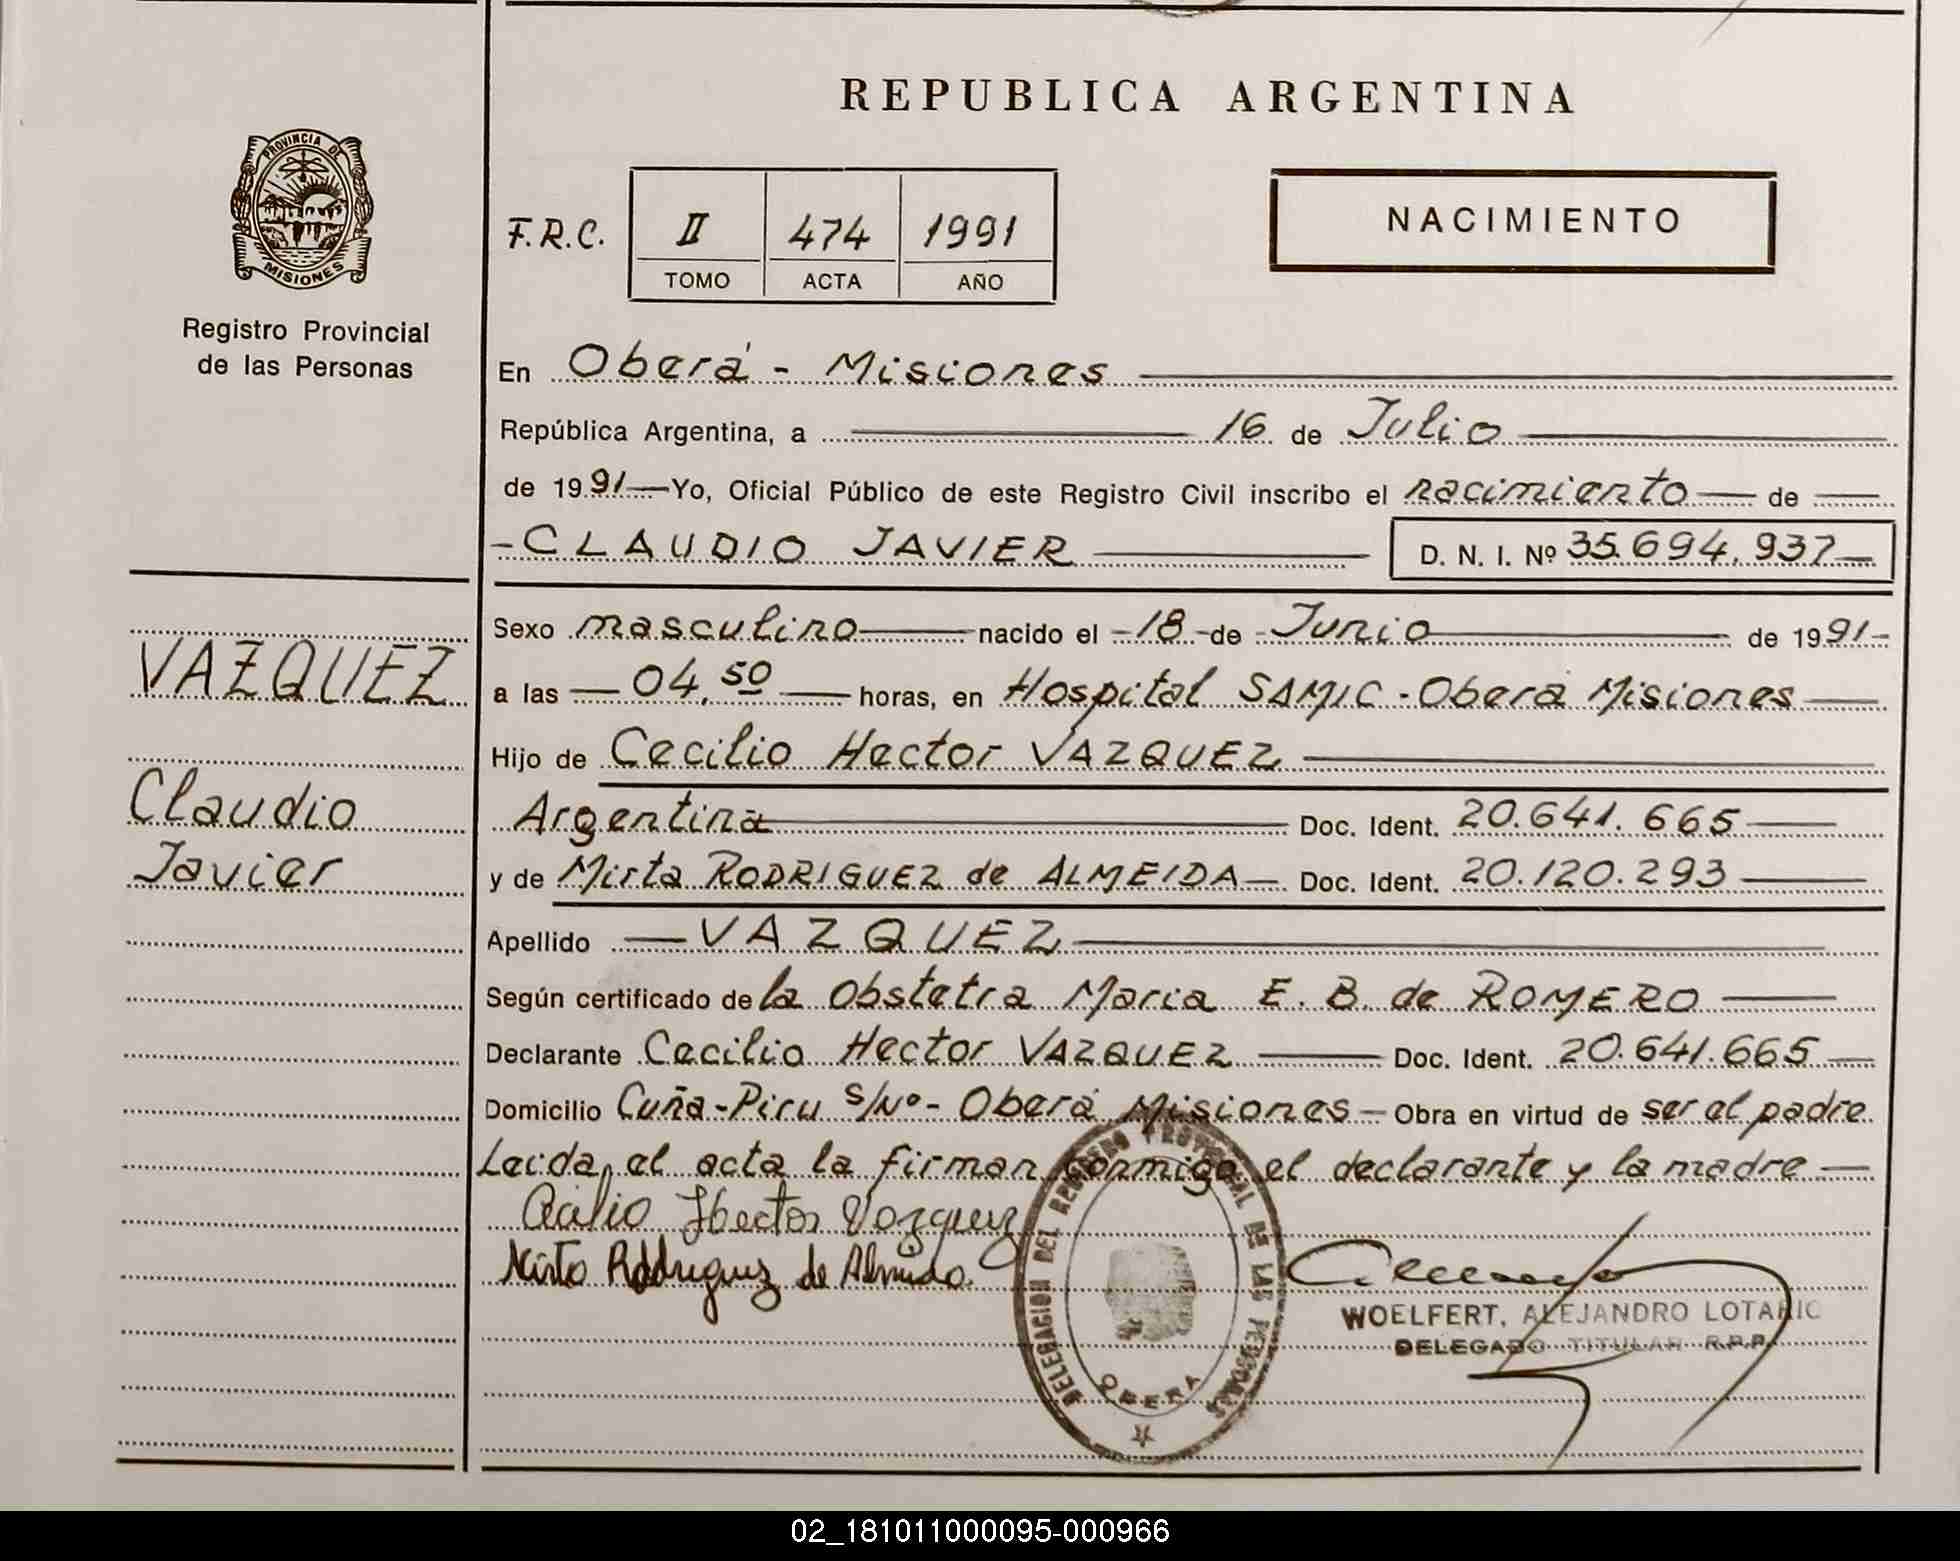 REPUBLICA ARGENTINA
PROVINCIA DE
MISIONES
Registro Provincial
de las Personas
F.R.C. II 474 1991
TOMO ACTA AÑO
NACIMIENTO
En Oberá - Misiones
República Argentina, a 16 de Julio
de 1991 Yo, Oficial Público de este Registro Civil inscribo el nacimiento de
- CLAUDIO JAVIER D. N. I. Nº 35.694.937
VAZQUEZ
Claudio
Javier
Sexo masculino nacido el 18 de Junio de 1991
a las 04,50 horas, en Hospital SAMIC - Oberá Misiones
Hijo de Cecilio Hector VAZQUEZ
Argentina Doc. Ident. 20.641.665
y de Mirta RODRIGUEZ de ALMEIDA Doc. Ident. 20.120.293
Apellido VAZQUEZ
Según certificado de la Obstetra Maria E. B. de ROMERO
Declarante Cecilio Hector VAZQUEZ Doc. Ident. 20.641.665
Domicilio Cuña-Piru S/Nº - Oberá Misiones Obra en virtud de ser el padre
Leida, el acta la firman conmigo el declarante y la madre
Cecilio Hector Vazquez
Mirta Rodriguez de Almeida
DELEGACION DEL REGISTRO PROVINCIAL DE LAS PERSONAS
OBERA
WOELFERT, ALEJANDRO LOTARIO
DELEGADO TITULAR R.P.P.
02_181011000095-000966